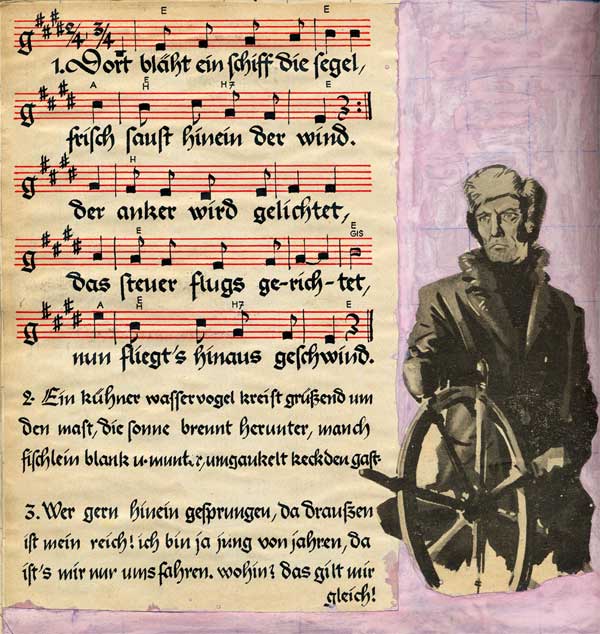 E E
2/4, 3/4
1. Dort bläht ein schiff die segel,
A E H H7 E
frisch saust hinein der wind.
H
der anker wird gelichtet,
E E GIS
das steuer flugs ge-rich-tet,
A E H H7 E
nun fliegt's hinaus geschwind.
2. Ein kühner wasservogel kreist grüßend um
den mast, die sonne brennt herunter, manch
fischlein blank u. munt.r, umgaukelt keck den gast.
3. Wer gern hinein gesprungen, da draußen
ist mein reich! ich bin ja jung von jahren, da
ist's mir nur ums fahren. wohin? das gilt mir
gleich!